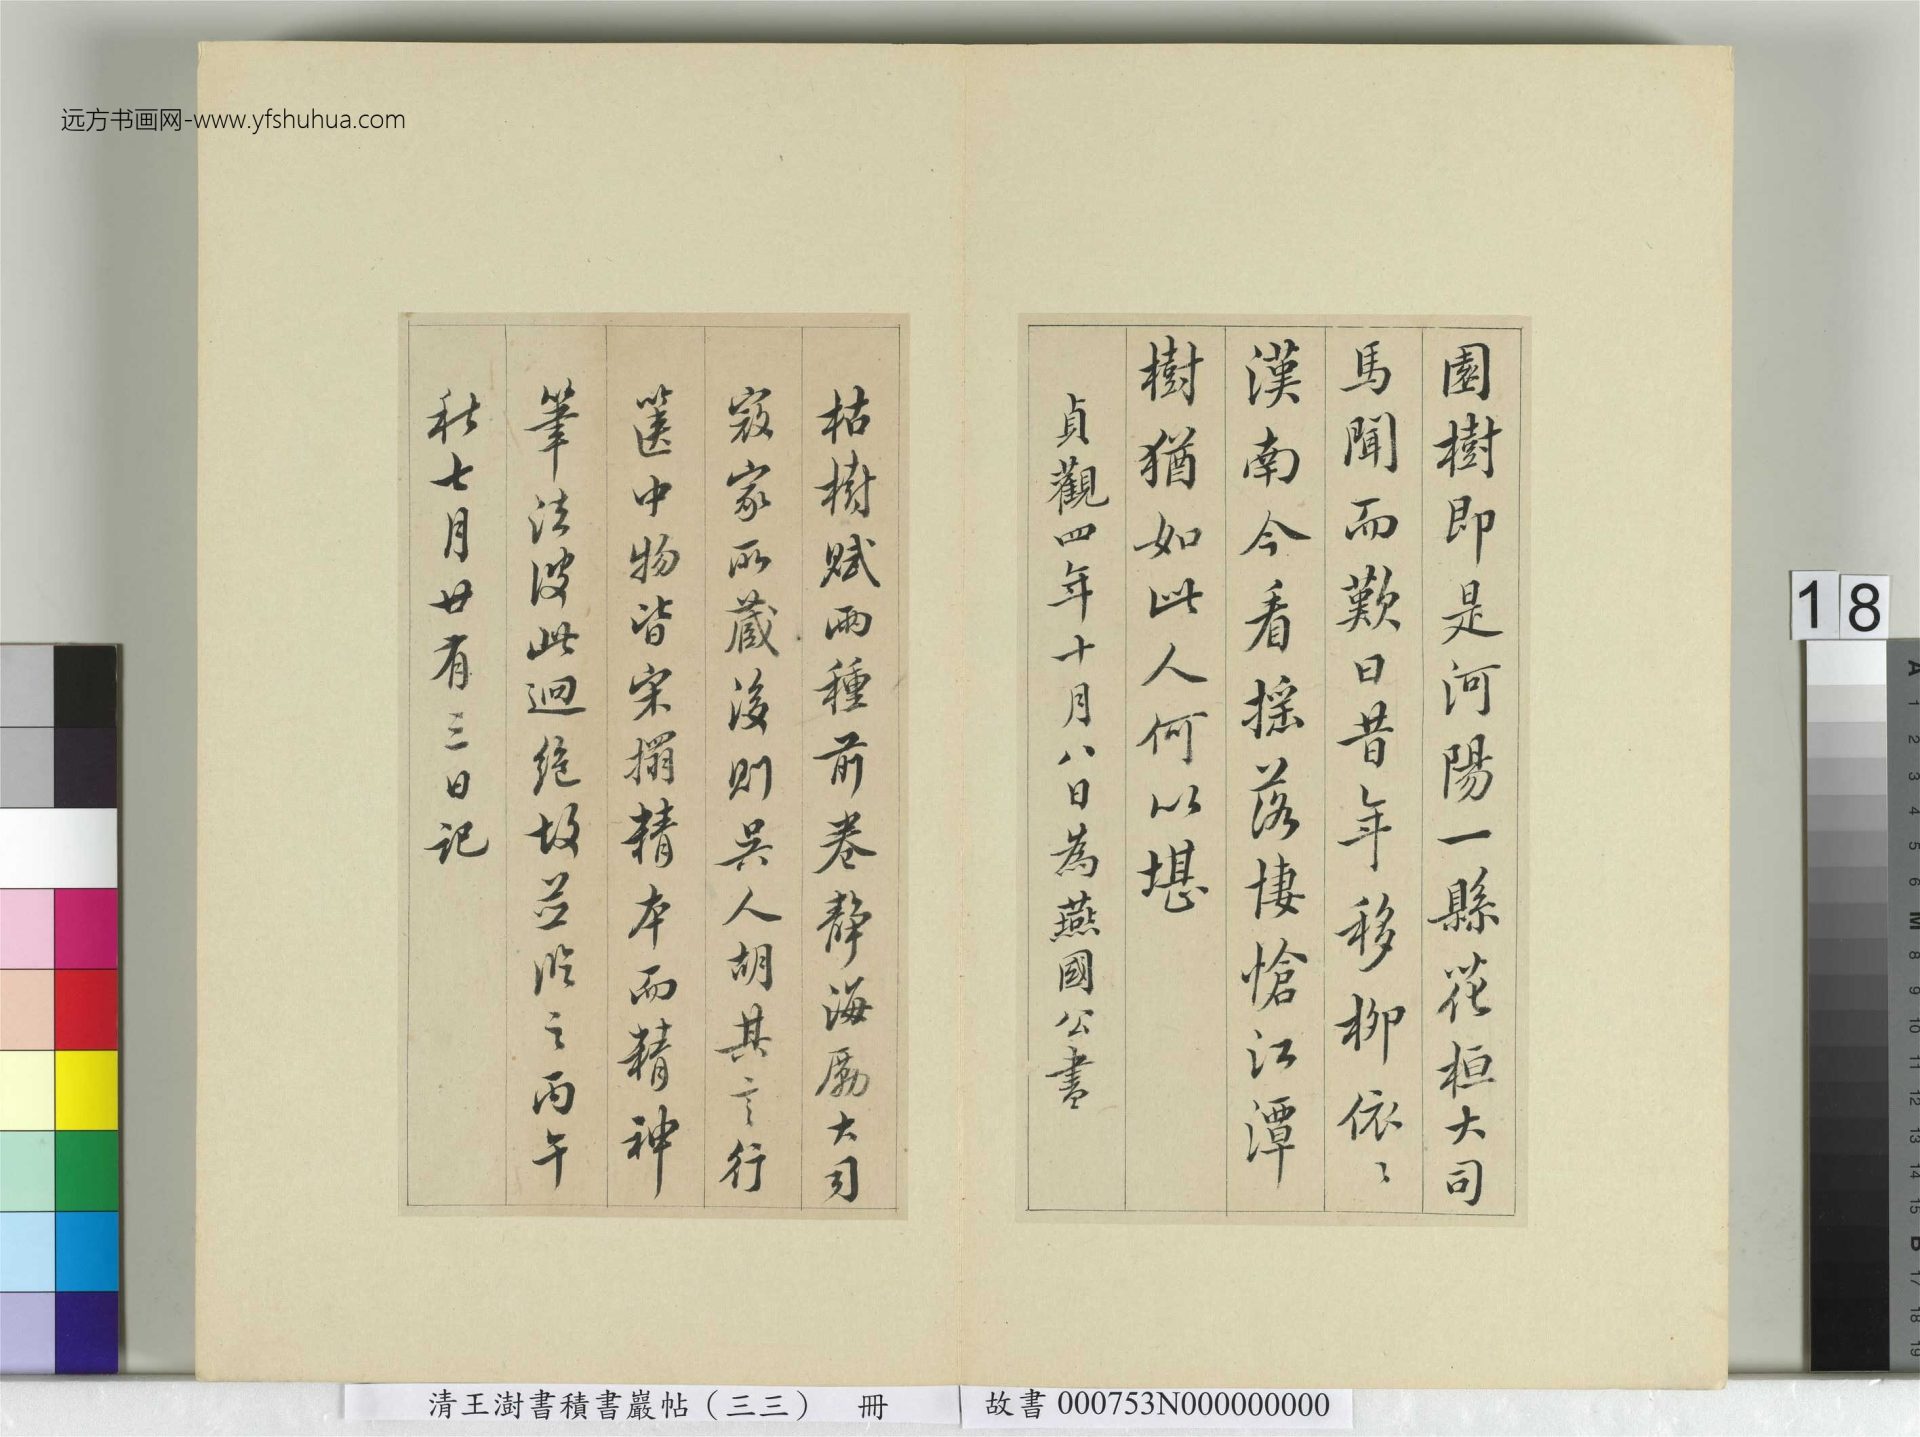 远方书画网-www.yfshuhua.com
園樹即是河陽一縣花桓大司
馬聞而歎曰昔年移柳依〻
漢南今看搖落悽愴江潭
樹猶如此人何以堪
貞觀四年十月八日為燕國公書
枯樹賦兩種前卷靜海勵大司
寇家所藏後則吳人胡其言行
篋中物皆宋搨精本而精神
筆法彼此迥絕故並臨之丙午
秋七月廿有三日記
清王澍書積書巖帖（三三） 冊
故書 000753N000000000
18
A 1 2 3 4 5 6 M 8 9 10 11 12 13 14 15 B 17 18 19